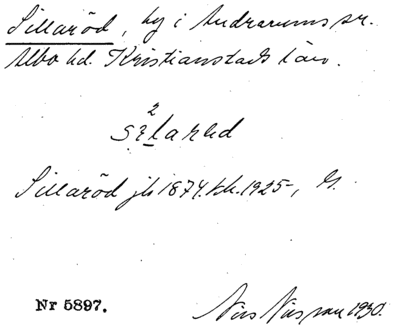 Sillaröd, by i Andrarums sn.
Albo hd. Kristianstads län.
Sillaröd jb 1874. kk. 1925-, G.
Nr 5897.
Nils Nilsson 1930.